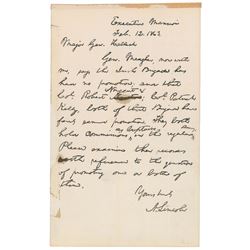 Executive Mansion
Feb. 12. 1863
Major Gen. Halleck
Gen. Meagher, now with
me, says the Irish Brigade has
had no promotion, and that
Col. Robert Nugent & Col. Patrick
Kelly, both of that Brigade have
fairly earned promotion. They both
hold commissions as Captains in the regular
Please examine their records
with reference to the question
of promoting one or both of
them.
Yours truly
A. Lincoln